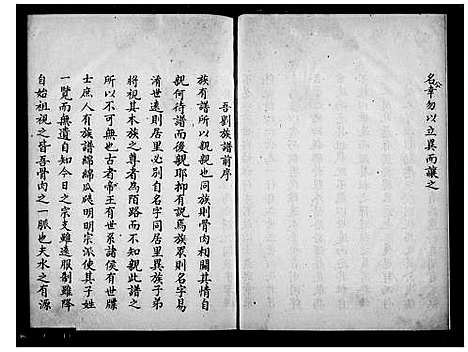 名幸勿以立異而讓之
公
吾劉族譜前序
族有譜所以親親也同族則骨肉相關其情自
親何待譜而後親耶抑有説焉族衆則名字易
淆世遠則居里必別自名字同居里異族子弟
將視其本族之尊者為陌路而不知尊此譜之
所以不可無也古者帝王有世系諸侯有世牒
士庶人有族譜綿綿瓜瓞明明宗派使其子姓
一覽而無遺自知今日之宗支雖遠服制雖降
自始祖視之皆吾骨肉之一脈也夫水之有源